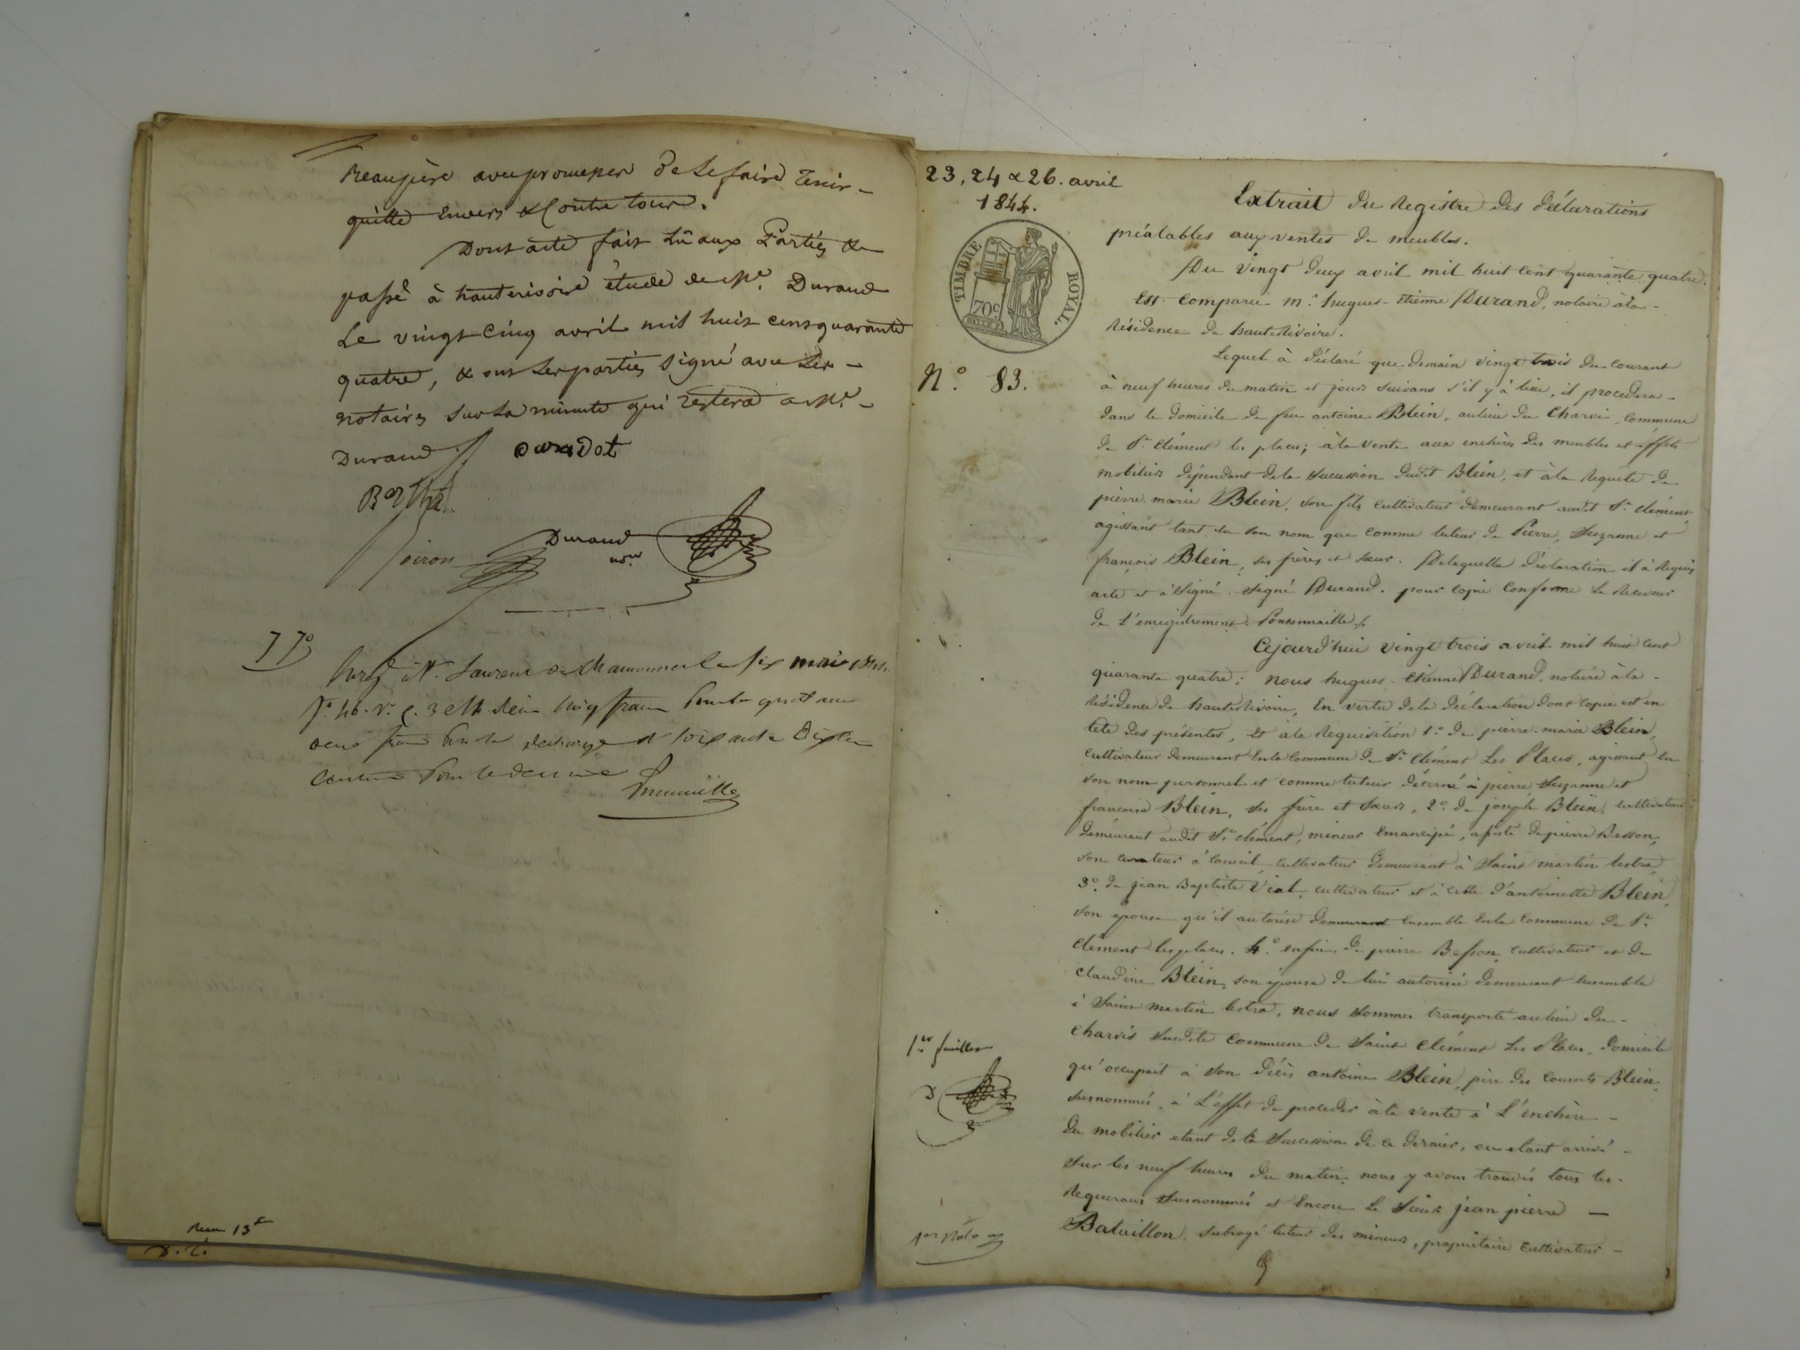 Beaupère avec promesse de le faire tenir -
quitte envers & contre tous.
Dont acte fait lû aux Parties &
passé à hauterivoire étude de Me. Durand
Le vingt cinq avril mil huit cent quarante
quatre, & ont les parties signé avec les -
notaires sur la minute qui restera a Me. -
Durand
Berthet
Durand
nore.
77°
six mai
vingt francs
décharge et soixante dix
centimes
Reçu 13f
23, 24 & 26. avril
1844.
TIMBRE ROYAL.
70c
N.° 83.
Extrait du Registre des déclarations
préalables aux ventes de meubles.
Du vingt deux avril mil huit cent quarante quatre.
Est comparu m.e hugues-Etienne Durand, notaire à la -
Résidence de hauterivoire.
Lequel à déclaré que demain vingt trois du courant
à neuf heures du matin et jours suivans s'il y à lieu, il procedera -
dans le domicile de feu antoine Blein, au lieu du Charvi, commune
de St. Clément les places; à la vente aux enchères des meubles et éffets
mobiliers dépendant de la succession dudit Blein, et à la Requête de
pierre marie Blein, son fils cultivateur demeurant audit St. clément,
agissant tant en son nom que comme tuteur de Pierre, Suzanne et
françois Blein, ses frères et sœur. De laquelle déclaration il à Requis
acte et à signé. signé Durand. pour copie Conforme Le Receveur
de l'enregistrement. Ponsonnaille ./.
Cejourd'hui vingt trois avril mil huit cent
quarante quatre; nous hugues-Etienne Durand, notaire à la -
Résidence de hauterivoire, En vertu de la déclaration dont copie est en
tete des présentes, Et à la Requisition 1.° de pierre-marie Blein,
cultivateur demeurant en la Commune de St. Clément Les Places, agissant en
son nom personnel et comme tuteur décerné à pierre Suzanne et
francois Blein, ses frère et sœurs, 2.° de joseph Blein, cultivateur
demeurant audit St. clément, mineur Emancipé, assisté de pierre Besson,
son curateur à conseil cultivateur demeurant à Saint martin lestra,
3.° de jean Baptiste Vial, cultivateur et à celle d'antoinette Blein,
son epouse qu'il autorise demeurant ensemble en la Commune de St.
Clément les places. 4.° enfin de pierre Besson, cultivateur et de
Claudine Blein, son épouse de lui autorisée demeurant ensemble
à Saint martin lestra, nous sommes transporté au lieu du -
Charvis susdite Commune de Saint Clément Les Places, domicile
qu'occupait à son décès antoine Blein, père des Consorts Blein
susnommés, à L'éffet de procéder à la vente à L'enchère -
du mobilier étant de la Succession de ce dernier, ou etant arrivé -
sur les neuf heures du matin, nous y avons trouvés tous les -
Requerans susnommés et Encore le Sieur jean pierre —
Bataillon, subrogé tuteur des mineurs, propriétaire cultivateur -
1er feuillet
D
1er Rôle